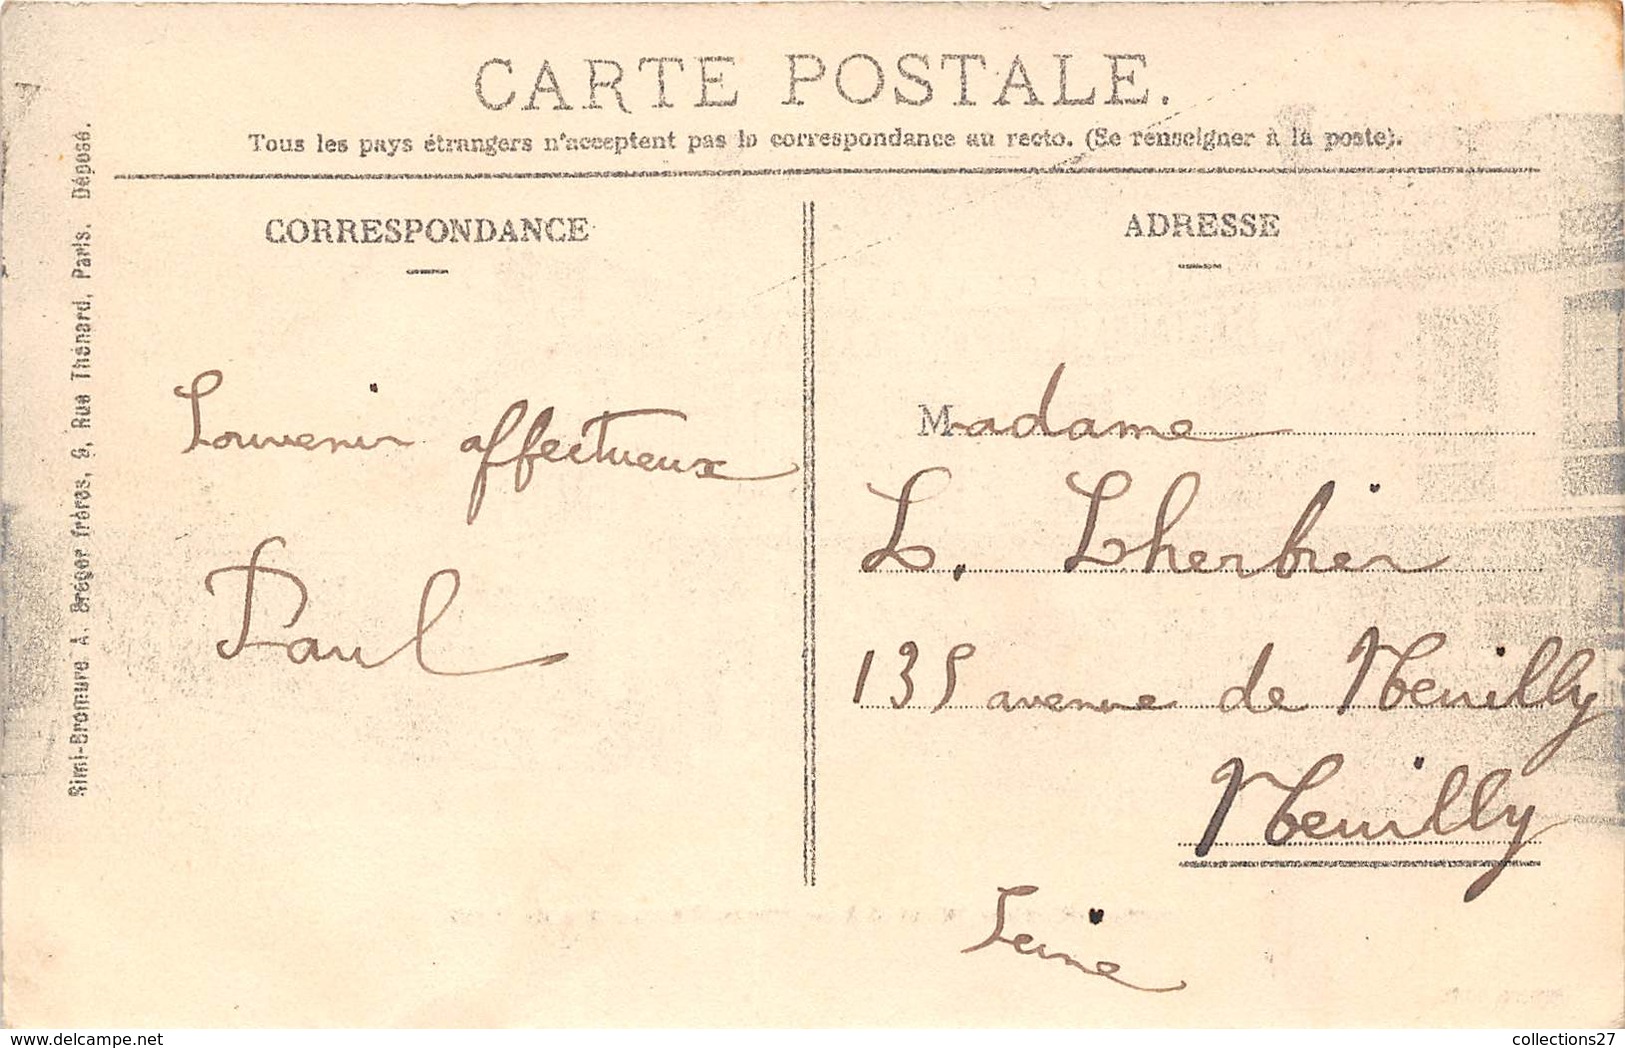 CARTE POSTALE.
Tous les pays étrangers n'acceptent pas la correspondance au recto. (Se renseigner à la poste).
Simi-Bromure A. Bréger frères, 9, Rue Thénard, Paris. Déposé.
CORRESPONDANCE
Souvenir affectueux
Paul
ADRESSE
Madame
L. Lherbier
135 avenue de Neuilly
Neuilly
Seine
collections27